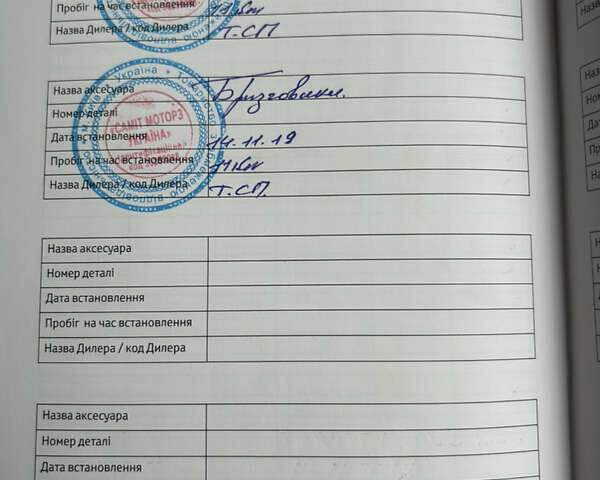 Пробіг на час встановлення
Назва Дилера / код Дилера Т.СП
Назва аксесуара Бризговики.
Номер деталі
Дата встановлення 14.11.19
Пробіг на час встановлення
Назва Дилера / код Дилера Т.СП.
Україна * Товариство з
«САМІТ МОТОРЗ
УКРАЇНА»
Назва аксесуара
Номер деталі
Дата встановлення
Пробіг на час встановлення
Назва Дилера / код Дилера
Назва аксесуара
Номер деталі
Дата встановлення